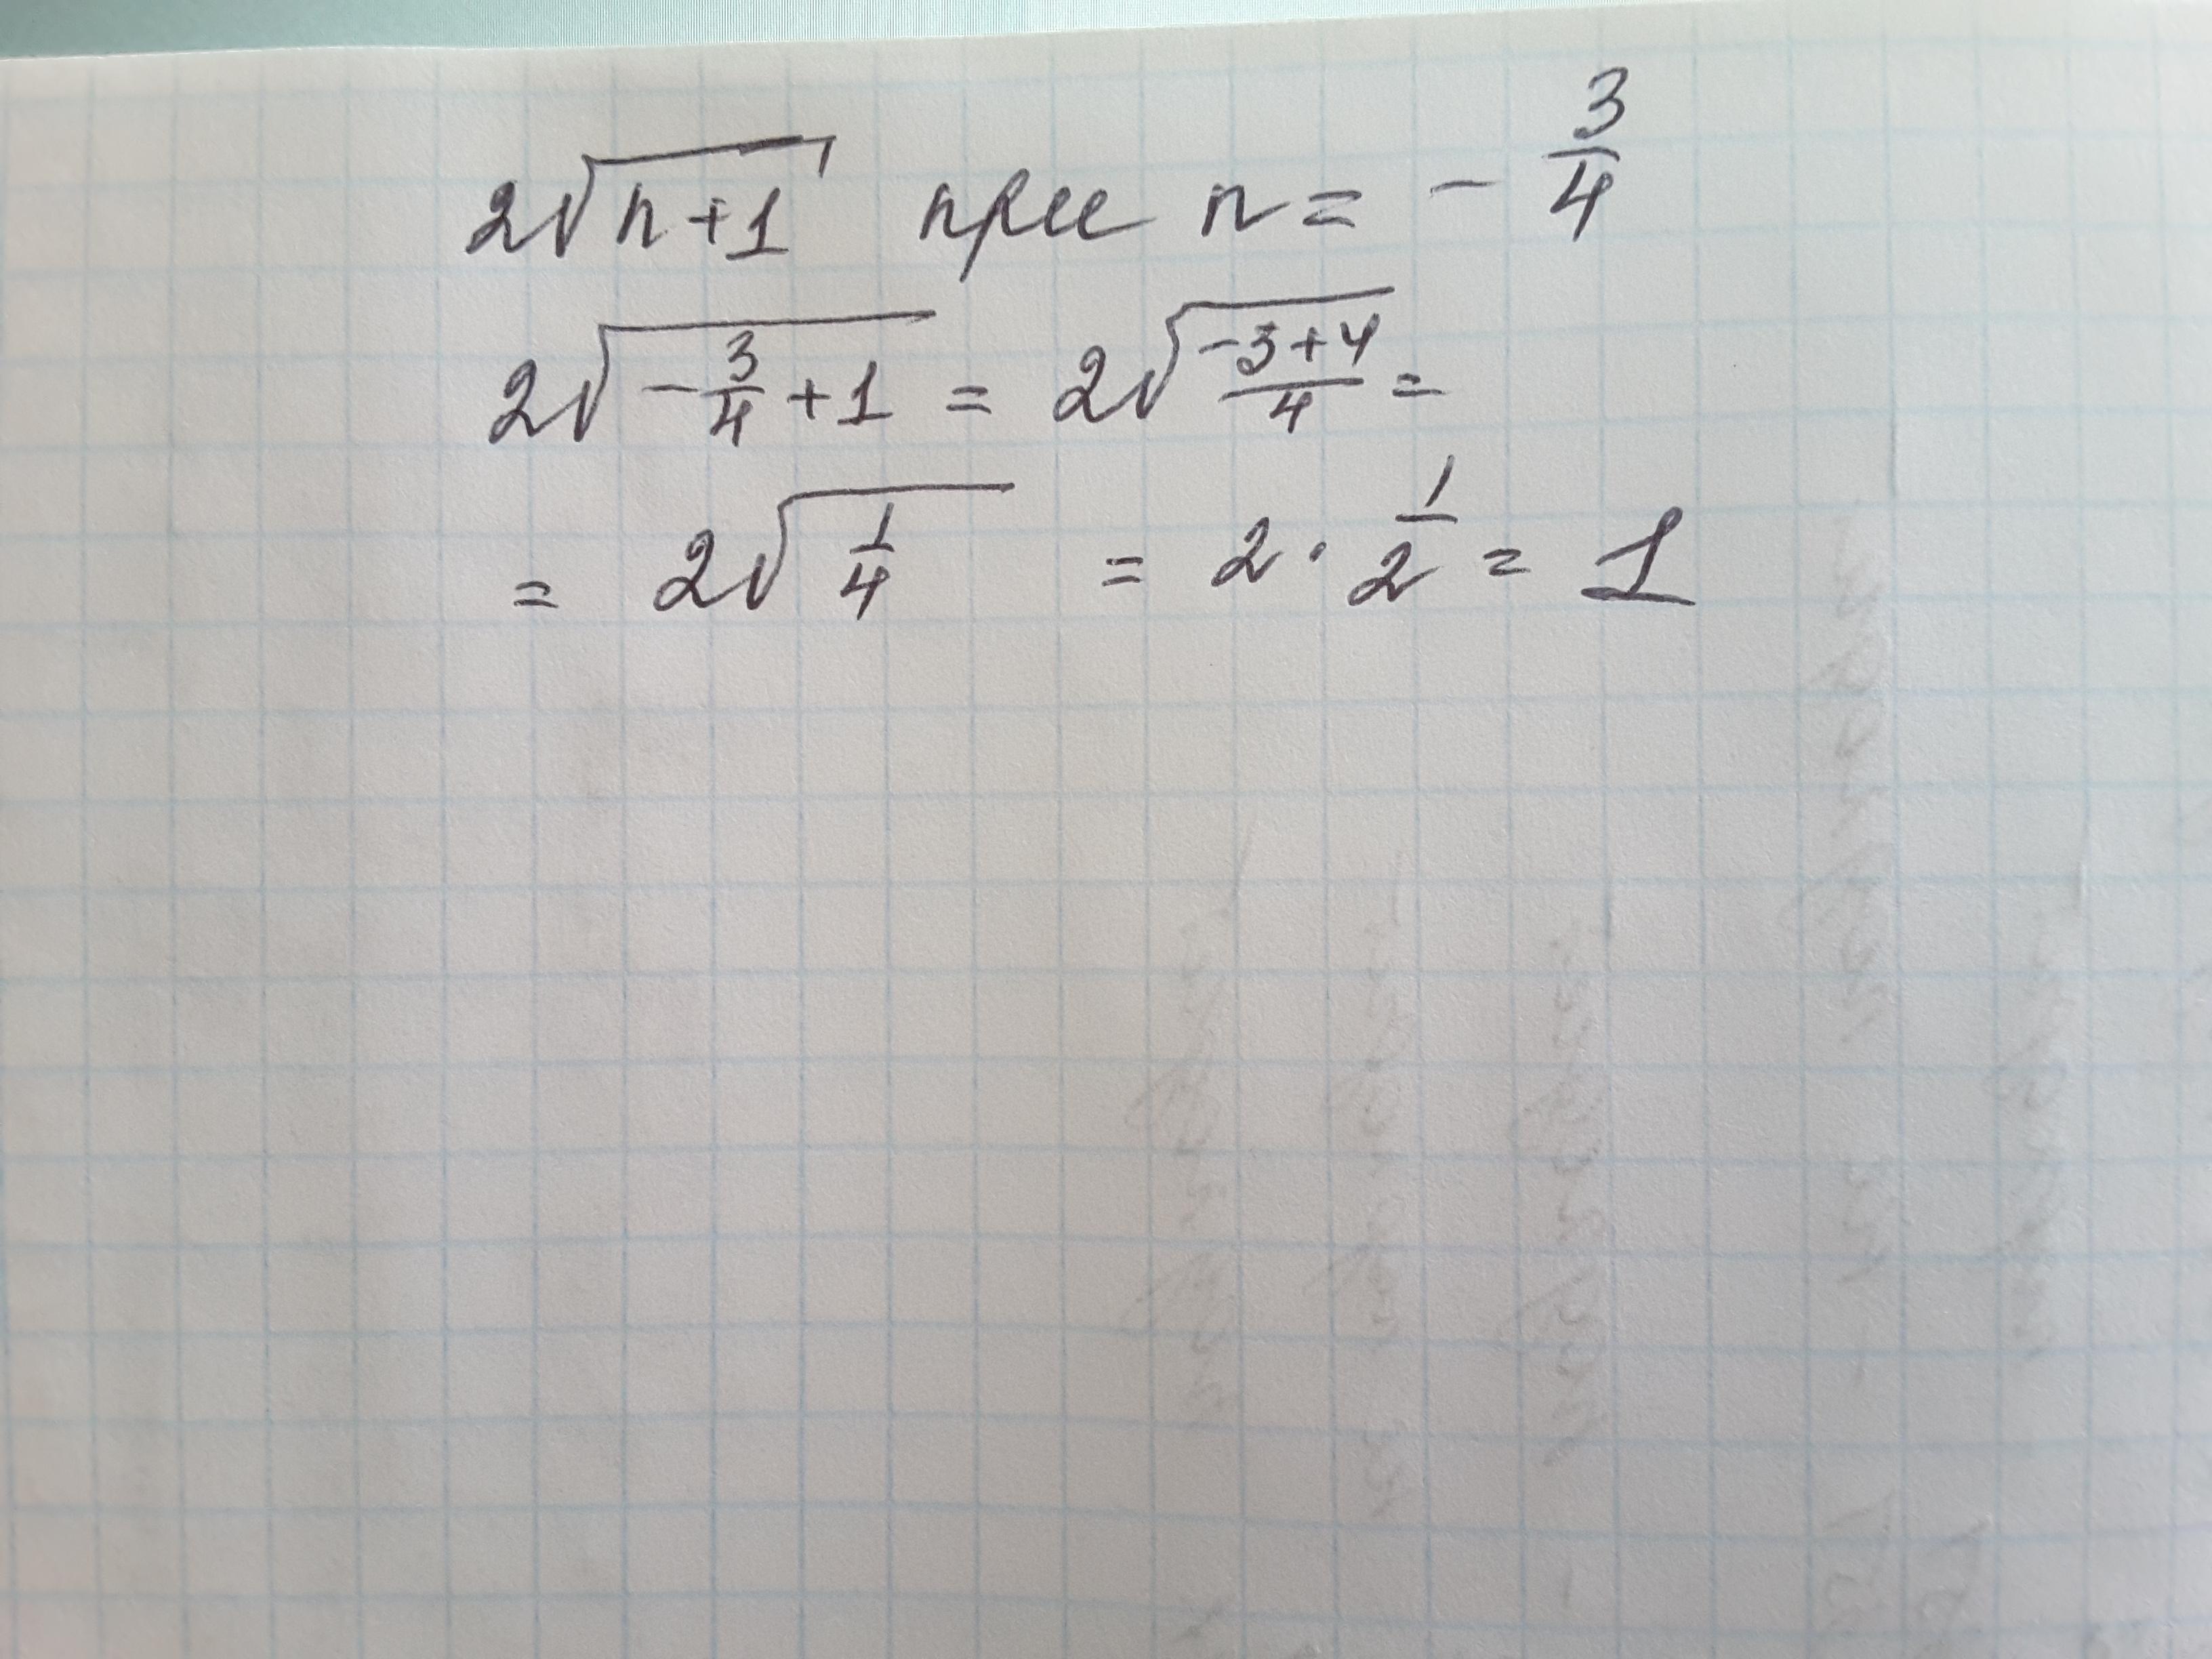 2√(n+1) при n = - 3/4
2√(-3/4 +1) = 2√((-3+4)/4) =
= 2√(1/4) = 2 · 1/2 = 1